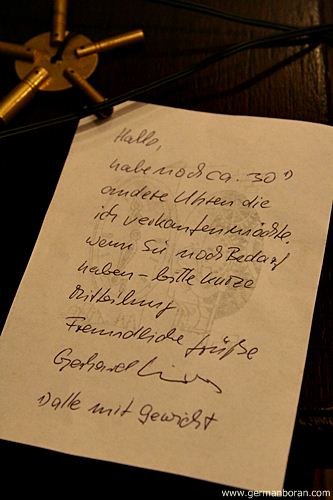 Hallo,
habe noch ca. 30
andere Uhren die
ich verkaufen möchte.
wenn Sie noch Bedarf
haben - bitte kurze
Mitteilung
Freundliche Grüße
Gerhard
mit Gewicht
www.germanboran.com